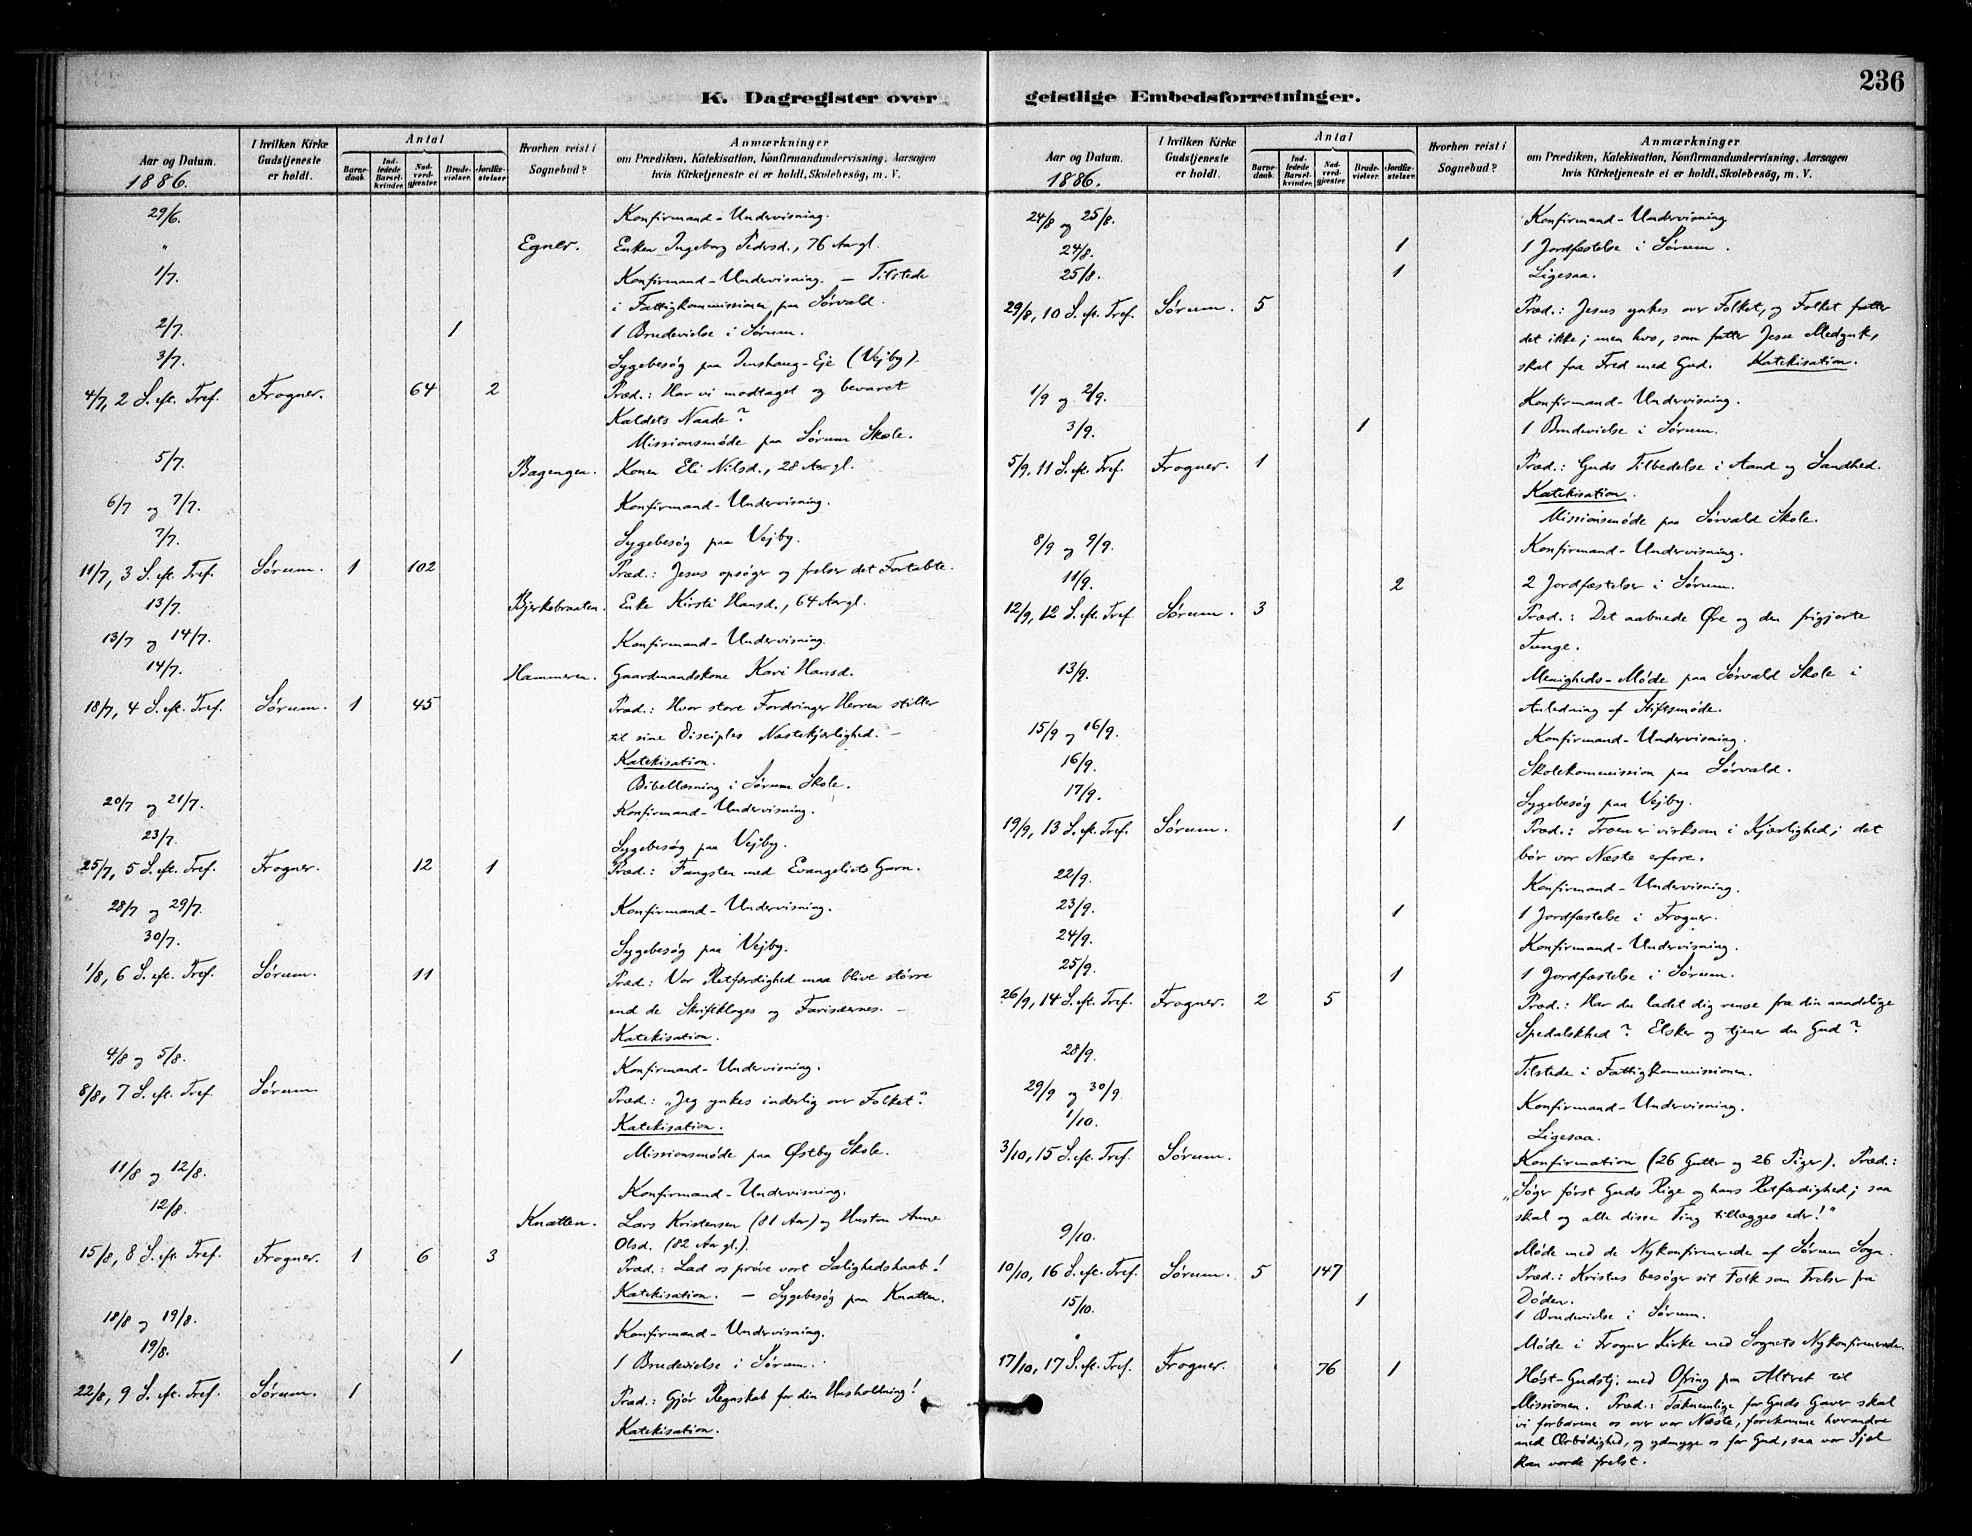 236
K. Dagregister over
geistlige Embedsforretninger.
Aar og Datum.
1886.
I hvilken Kirke
Gudstjeneste
er holdt.
Antal
Barne-
daab.
Ind-
ledede
Barsel-
kvinder.
Nad-
verd-
gjæster.
Brude-
vielser.
Jordfæ-
stelser.
Hvorhen reist i
Sognebud?
Anmærkninger
om Prædiken, Katekisation, Konfirmandundervisning, Aarsagen
hvis Kirketjeneste ei er holdt, Skolebesøg, m. V.
29/6. Konfirmand-Undervisning.
" Egner. Enken Ingeborg Pedersd., 76 Aar gl.
1/7. Konfirmand-Undervisning. — Tilstede
i Fattigkommissionen paa Sørvald.
2/7. 1 1 Brudevielse i Sørum.
3/7. Sygebesøg paa Jenshaug-Eje (Vejby).
4/7, 2 S. eft. Tref. Frogner. 64 2 Præd.: Har vi modtaget og bevaret
Kaldets Naade?
Missionsmøde paa Sørum Skole.
5/7. Bagengen. Konen Eli Nilsd., 28 Aar gl.
6/7 og 7/7. Konfirmand-Undervisning.
7/7. Sygebesøg paa Vejby.
11/7, 3 S. eft. Tref. Sørum. 1 102 Præd.: Jesus opsøger og frelser det Fortabte.
13/7. Bjerkebraaten. Enke Kirsti Hansd., 64 Aar gl.
13/7 og 14/7. Konfirmand-Undervisning.
14/7. Hammeren. Gaardmandskone Kari Hansd.
18/7, 4 S. eft. Tref. Sørum. 1 45 Præd.: Hvor store Fordringer Herren stiller
til sine Disciples Næstekjærlighed. —
Katekisation.
Bibellæsning i Sørum Skole.
20/7 og 21/7. Konfirmand-Undervisning.
23/7. Sygebesøg paa Vejby.
25/7, 5 S. eft. Tref. Frogner. 12 1 Præd.: Fangsten med Evangeliets Garn.
28/7 og 29/7. Konfirmand-Undervisning.
30/7. Sygebesøg paa Vejby.
1/8, 6 S. eft. Tref. Sørum. 11 Præd.: Vor Retfærdighed maa blive større
end de Skriftkloges og Farisæernes. —
Katekisation.
4/8 og 5/8. Konfirmand-Undervisning.
8/8, 7 S. eft. Tref. Sørum Præd.: „Jeg ynkes inderlig over Folket".
Katekisation.
Missionsmøde paa Østby Skole.
11/8 og 12/8. Konfirmand-Undervisning.
12/8. Knatten. Lars Kristensen (81 Aar) og Hustru Anne
Olsd. (82 Aar gl.).
15/8, 8 S. eft. Tref. Frogner. 1 6 3 Præd.: Lad os prøve vort Salighedshaab!
Katekisation. — Sygebesøg paa Knatten.
18/8 og 19/8. Konfirmand-Undervisning.
19/8. 1 1 Brudevielse i Sørum.
22/8, 9 S. eft. Tref. Sørum. 1 Præd.: Gjør Regnskab for din Husholdning!
Katekisation.
Aar og Datum.
1886.
I hvilken Kirke
Gudstjeneste
er holdt.
Antal
Barne-
daab.
Ind-
ledede
Barsel-
kvinder.
Nad-
verd-
gjæster.
Brude-
vielser.
Jordfæ-
stelser.
Hvorhen reist i
Sognebud?
Anmærkninger
om Prædiken, Katekisation, Konfirmandundervisning, Aarsagen
hvis Kirketjeneste ei er holdt, Skolebesøg, m. V.
24/8 og 25/8. Konfirmand-Undervisning
24/8. 1 1 Jordfæstelse i Sørum.
25/8. 1 Ligesaa.
29/8, 10 S. eft. Tref. Sørum. 5 Præd.: Jesus ynkes over Folket, og Folket fatter
det ikke; men hvo, som fatter Jesu Medynk,
skal faa Fred med Gud. Katekisation.
1/9 og 2/9. Konfirmand-Undervisning.
3/9. 1 1 Brudevielse i Sørum.
5/9, 11 S. eft. Tref. Frogner. 1 Præd.: Guds Tilbedelse i Aand og Sandhed.
Katekisation.
Missionsmøde paa Sørvald Skole.
8/9 og 9/9. Konfirmand-Undervisning.
11/9. 2 2 Jordfæstelser i Sørum.
12/9, 12 S. eft. Tref. Sørum. 3 Præd.: Det aabnede Øre og den frigjorte
Tunge.
13/9. Menigheds-Møde paa Sørvald Skole i
Anledning af Stiftsmøde.
15/9 og 16/9. Konfirmand-Undervisning.
16/9. Skolekommission paa Sørvald.
17/9. Sygebesøg paa Vejby.
19/9, 13 S. eft. Tref. Sørum. 1 Præd.: Troen er virksom i Kjærlighed; det
bør vor Næste erfare.
22/9. Konfirmand-Undervisning.
23/9. 1 1 Jordfæstelse i Frogner.
24/9. Konfirmand-Undervisning.
25/9. 1 1 Jordfæstelse i Sørum.
26/9, 14 S. eft. Tref. Frogner. 2 5 Præd.: Har du ladet dig rense fra din aandelige
Spedalskhed? Elsker og tjener du Gud?
28/9. Tilstede i Fattigkommissionen.
29/9 og 30/9. Konfirmand-Undervisning.
1/10. Ligesaa.
3/10, 15 S. eft. Tref. Sørum. Konfirmation (26 Gutter og 26 Piger). Præd.:
„Søger først Guds Rige og hans Retfærdighed; saa
skal og alle disse Ting tillægges eder!"
9/10. Møde med de Nykonfirmerede af Sørum Sogn.
10/10, 16 S. eft. Tref. Sørum. 5 147 Præd.: Kristus besøger sit Folk som Frelser fra
Døden.
15/10. 1 1 Brudevielse i Sørum.
" Møde i Frogner Kirke med Sognets Nykonfirmerede.
17/10, 17 S. eft. Tref. Frogner. 76 1 Høst-Gudstj. med Ofring paa Altret til
Missionen. Præd.: Taknemlige for Guds Gaver skal
vi forbarme os over vor Næste, forekomme hverandre
med Ærbødighed, og ydmyge os for Gud, saa vor Sjæl
kan vorde frelst.